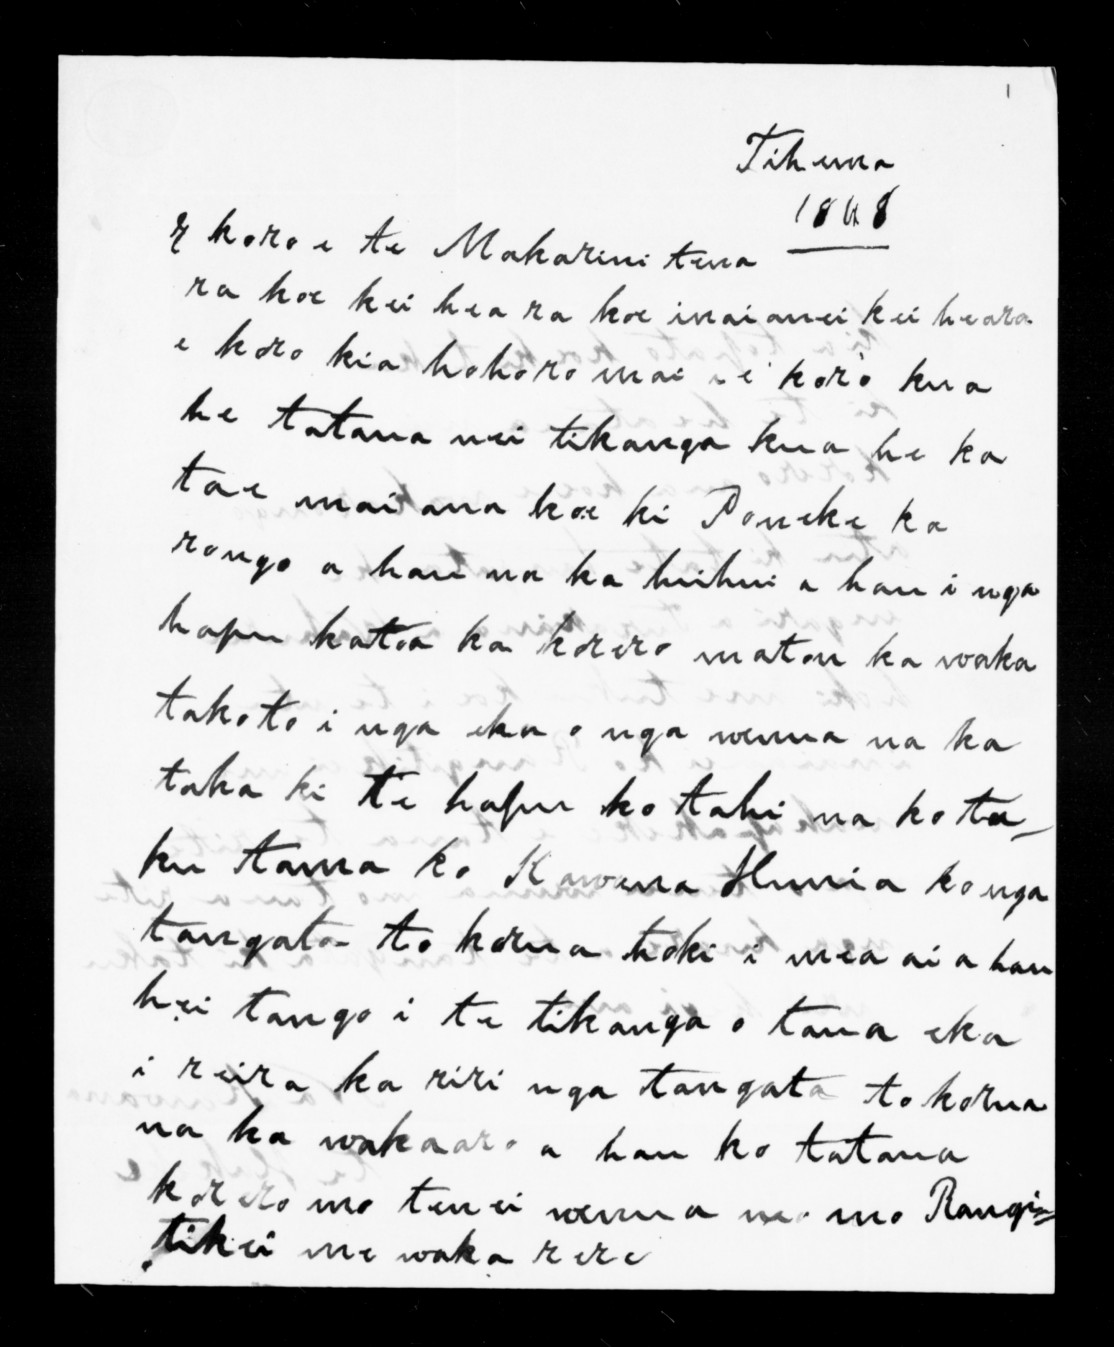 1
Tihema
1848
E koro e te Makarini tena
ra koe kei hea ra koe inaianei kei heara
e koro kia hohoro mai e koro kua
he tatana nei tikanga kua he ka
tae mai ana koe ki Poneke ka
rongo a hau na ka huihui a hau i nga
hapu katoa ka korero matou ka waka
takoto i nga eka o nga wenua na ka
taka ki te hapu ko tahi na ko ta-
ku tama ko Kawana Hunia ko nga
tangata to korua hoki i mea ai a hau
hei tango i te tikanga o tana eka
i reira ka riri nga tangata to korua
na ka wakaaro a hau ko tatana
korero mo tenei wenua mo Rangi=
tikei me waka rere